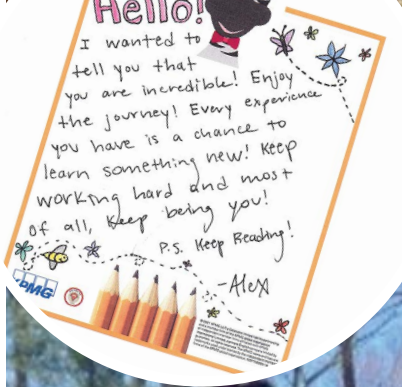 Hello!
I wanted to
tell you that
you are incredible! Enjoy
the journey! Every experience
you have is a chance to
learn something new! Keep
working hard and most
of all, Keep being you!
P.S. Keep Reading!
-Alex
KPMG